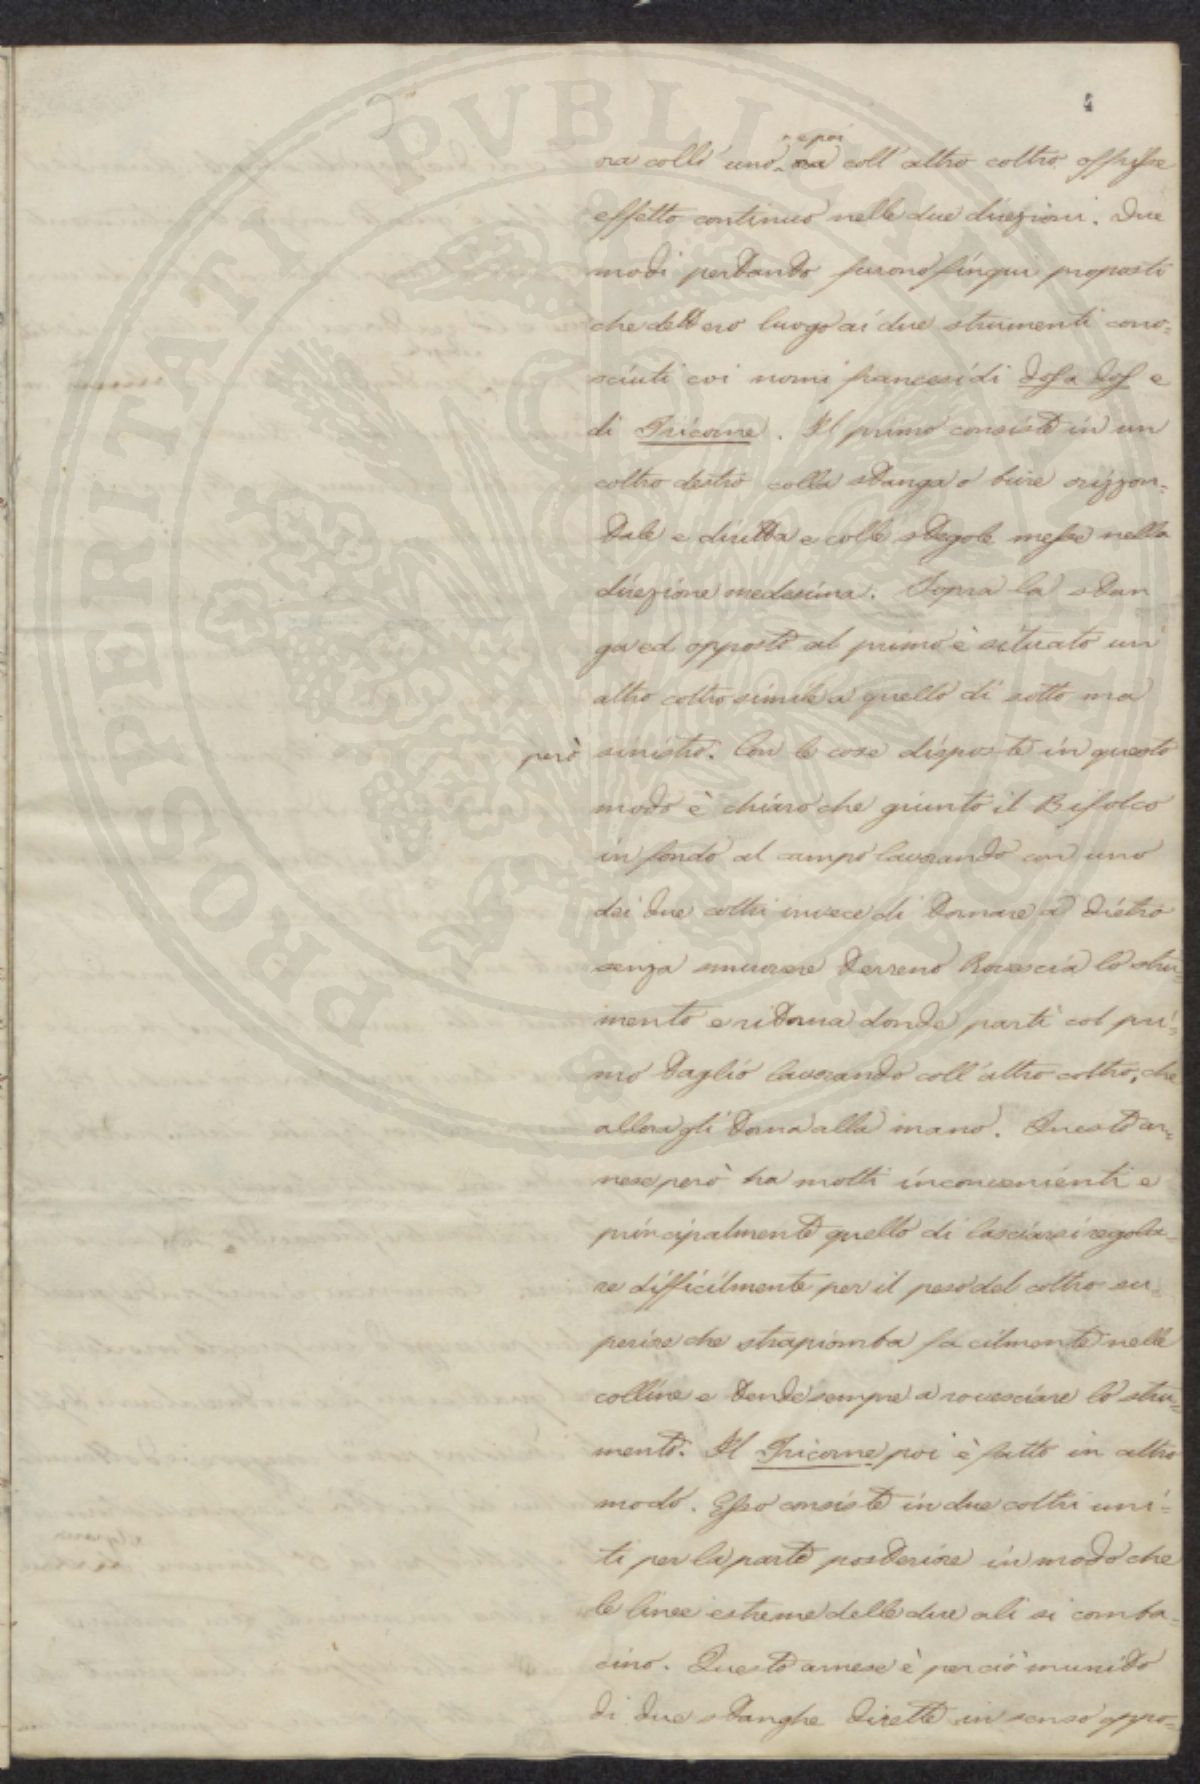 4
e poi
ora coll'uno ora coll'altro coltro offrisse
effetto continuo nelle due direzioni. Due
modi pertanto furono finqui proposti
che dettero luogo ai due strumenti cono=
sciuti coi nomi francesi di Dos a Dos e
di Tricorne. Il primo consiste in un
coltro destro colla stanga o bure orizzon=
tale e diritta e colle stegole messe nella
direzione medesima. Sopra la stan
ga ed opposto al primo è situato un
altro coltro simile a quello di sotto ma
però sinistro. Con le cose disposte in questo
modo è chiaro che giunto il Bifolco
in fondo al campo lavorando con uno
dei due coltri invece di tornare a dietro
senza smuovere terreno Rovescia lo stru=
mento e ritorna donde partì col pri=
mo taglio lavorando coll'altro coltro, che
allora gli torna alla mano. Questo ar=
nese però ha molti inconvenienti e
principalmente quello di lasciarsi regola=
re difficilmente per il peso del coltro su=
periore che strapiomba facilmente nelle
colline e tende sempre a rovesciare lo stru=
mento. Il Tricorne poi è fatto in altro
modo. Esso consiste in due coltri uni=
ti per la parte posteriore in modo che
le linee estreme delle due ali si comba=
cino. Questo arnese è perciò munito
di due stanghe dirette in senso oppo=
PROSPERITATI PVBLICAE